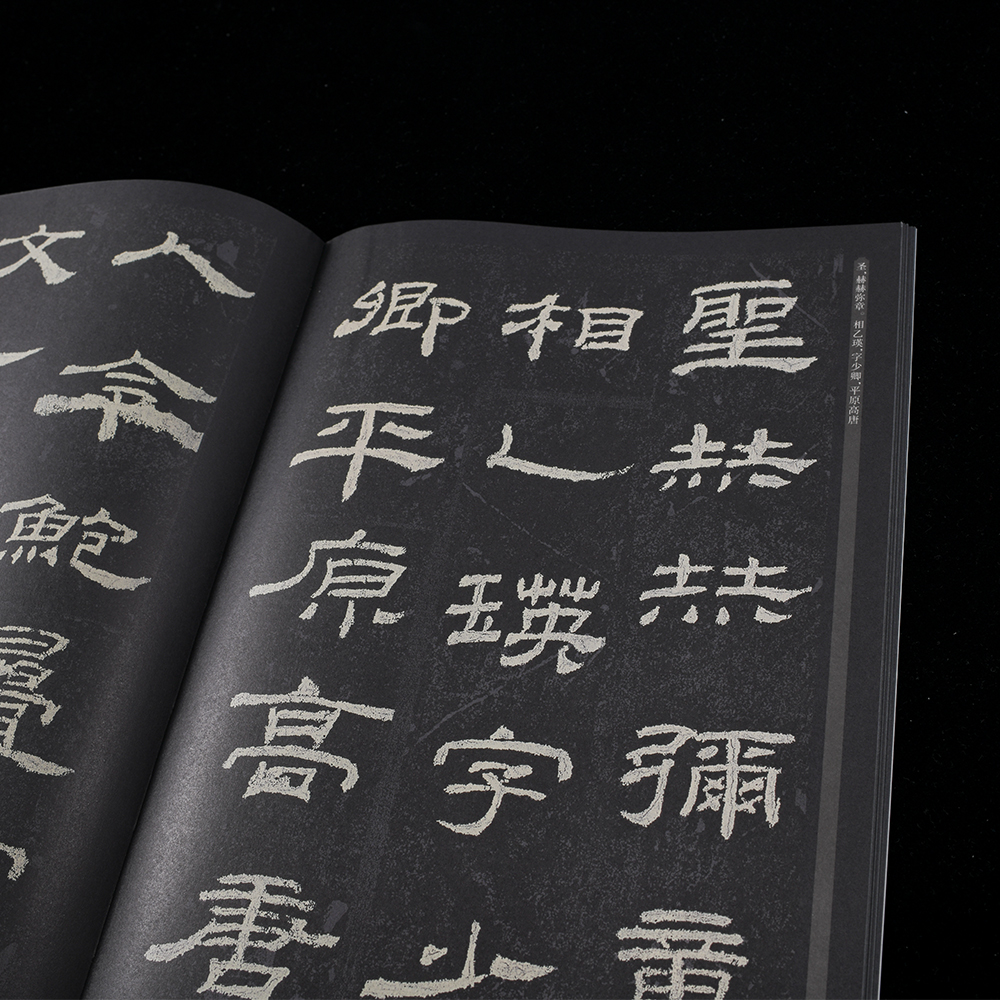 圣,赫赫弥章 相乙瑛,字少卿,平原高唐
聖赫赫彌章
相乙瑛字少
卿平原高唐
人令鮑疊
文